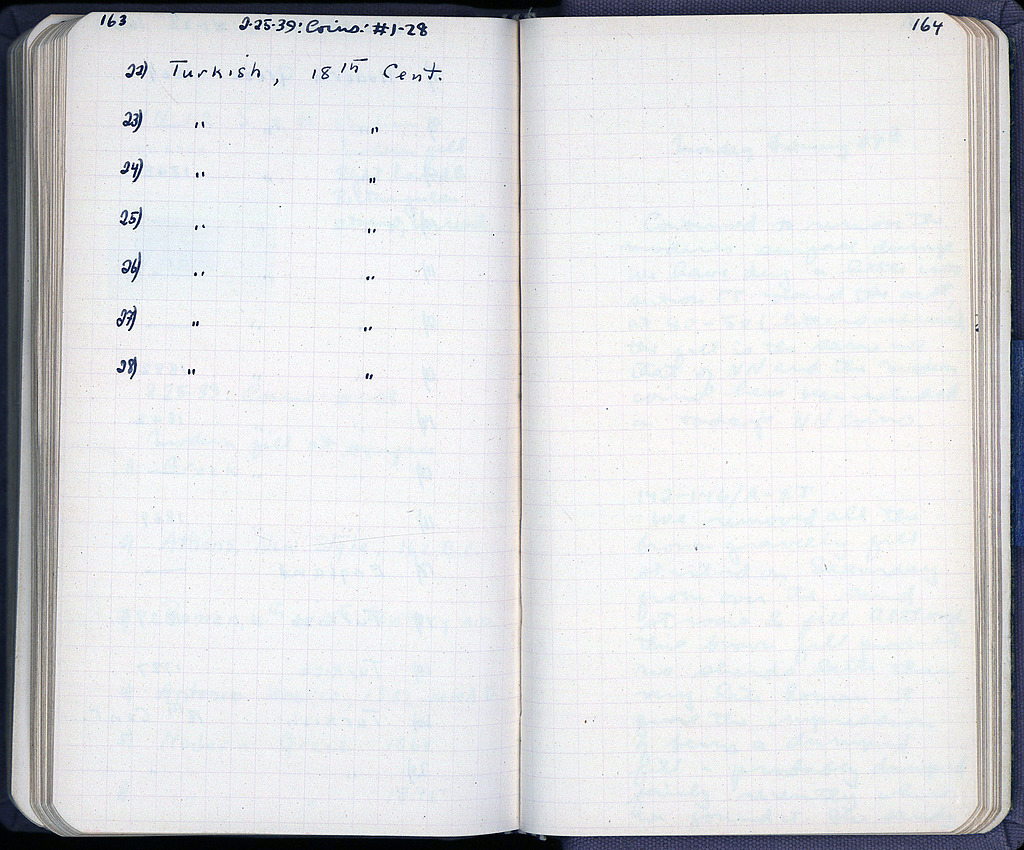 163
2-25-39: Coins: #1-28
22) Turkish, 18th Cent.
23) " "
24) " "
25) " "
26) " "
27) " "
28) " "
164